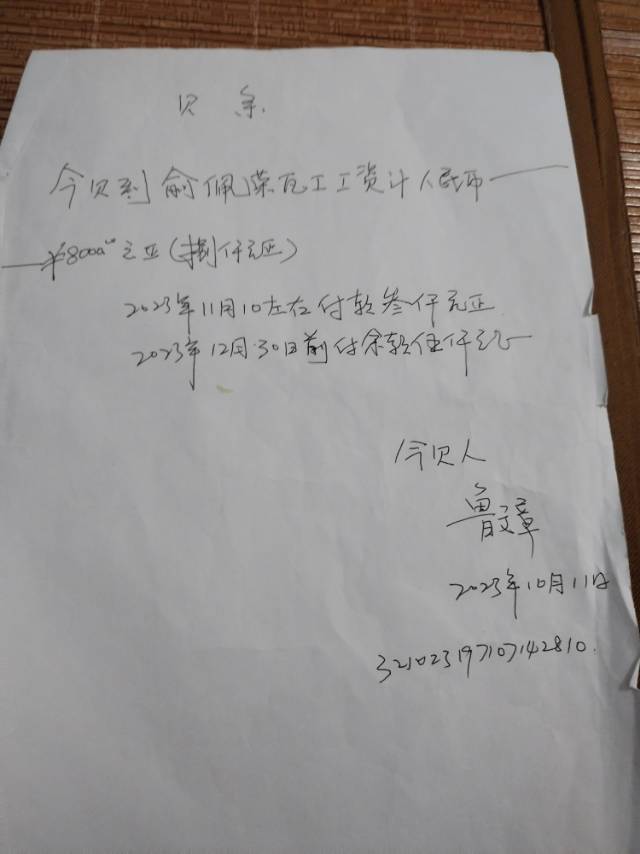 贝 条
今贝到俞佩荣瓦工工资计人民币——
——¥8000.00元正(捌仟元正)
2023年11月10左右付款叁仟元正
2023年12月30日前付余款伍仟元正
今贝人
鲁文章
2023年10月11日
321023197107142810.